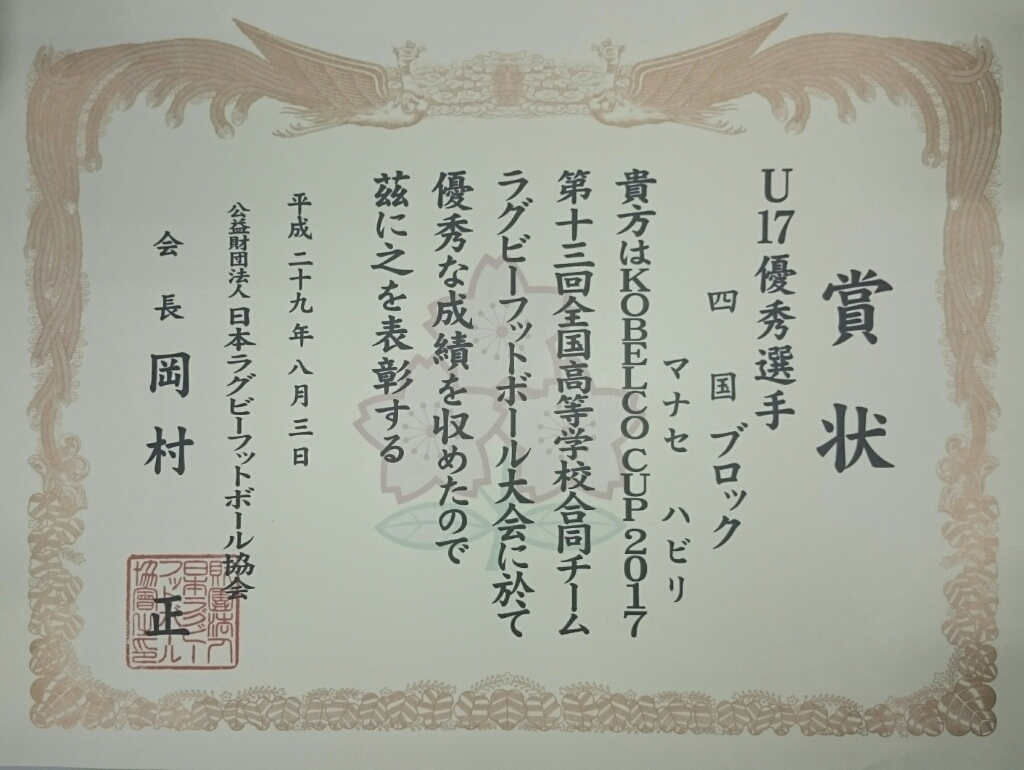 賞状
U17優秀選手
四国ブロック
マナセ ハビリ
貴方はKOBELCO CUP 2017
第十三回全国高等学校合同チーム
ラグビーフットボール大会に於て
優秀な成績を収めたので
茲に之を表彰する
平成二十九年八月三日
公益財団法人 日本ラグビーフットボール協会
会長 岡村 正
財團法人
日本ラグビー
フットボール
協會之印